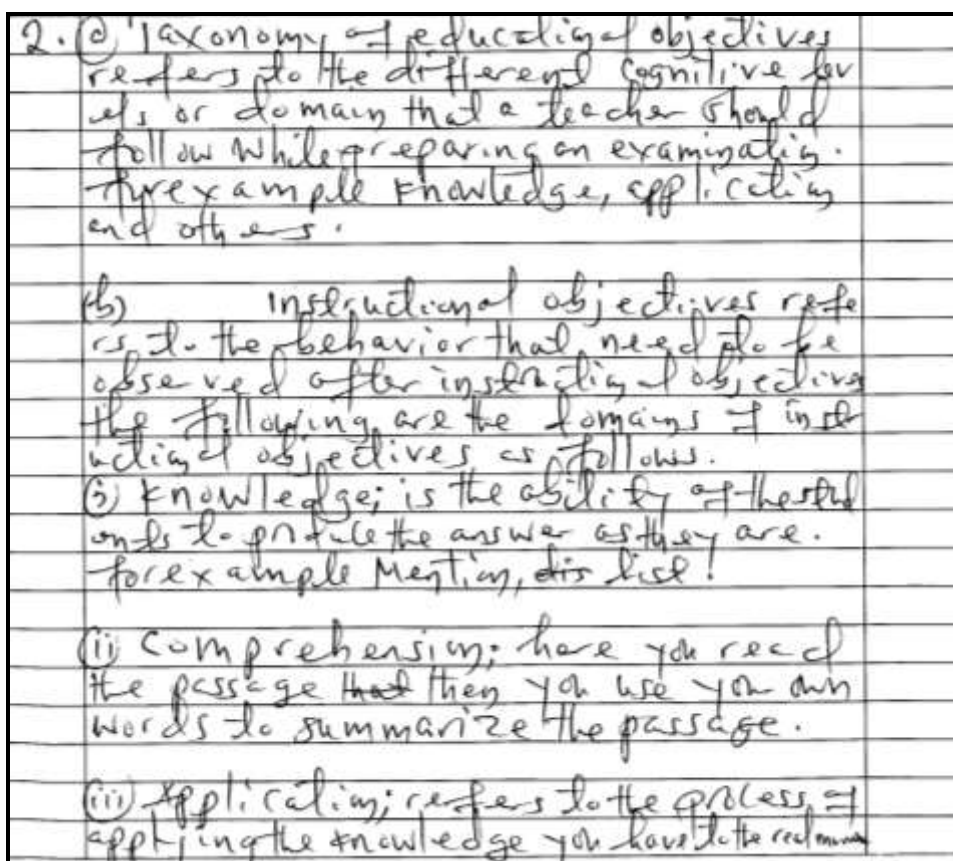 2. (a) Taxonomy of educational objectives
refers to the different cognitive lev
els or domain that a teacher should
follow while preparing an examination.
forexample knowledge, application
and others.
(b) instructional objectives refe
rs to the behavior that need to be
observed after instructional objective
the following are the domains of instr
uctional objectives as follows.
(i) knowledge; is the ability of the stud
ents to produce the answer as they are.
forexample Mention, list!
(ii) Comprehension; here you read
the passage then you use your own
words to summarize the passage.
(iii) Application; refers to the process of
applying the knowledge you have to the real